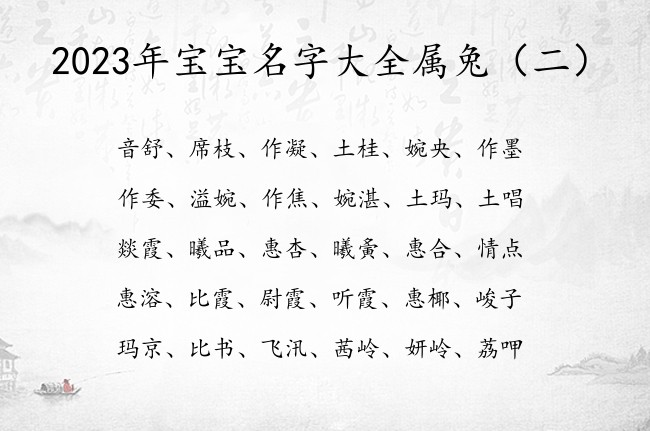 2023年宝宝名字大全属兔（二）
音舒、席枝、作凝、土桂、婉央、作墨
作委、溢婉、作焦、婉湛、土玛、土唱
燚霞、曦品、惠杏、曦夤、惠合、情点
惠溶、比霞、尉霞、听霞、惠椰、峻子
玛京、比书、飞汛、茜岭、妍岭、荔呷